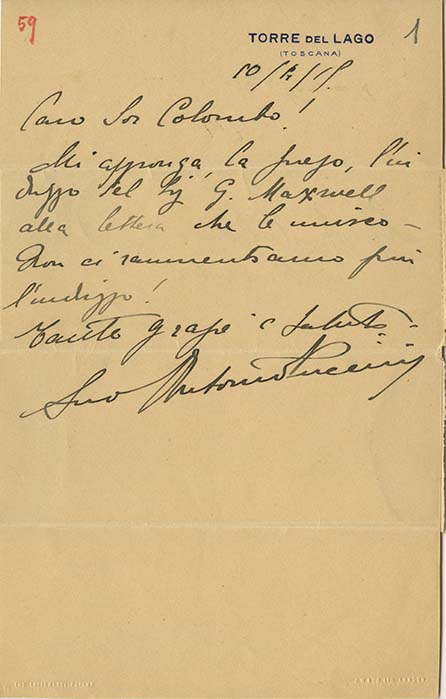 59
1
TORRE DEL LAGO
(TOSCANA)
Caro Sor Colombo!
Mi apponga, la prego, l'in
dirizzo del Sig G. Maxwell
alla lettera che le unisco –
Non ci rammentiamo più
l'indirizzo!
Tante grazie e saluti –
Suo Antonio Puccini